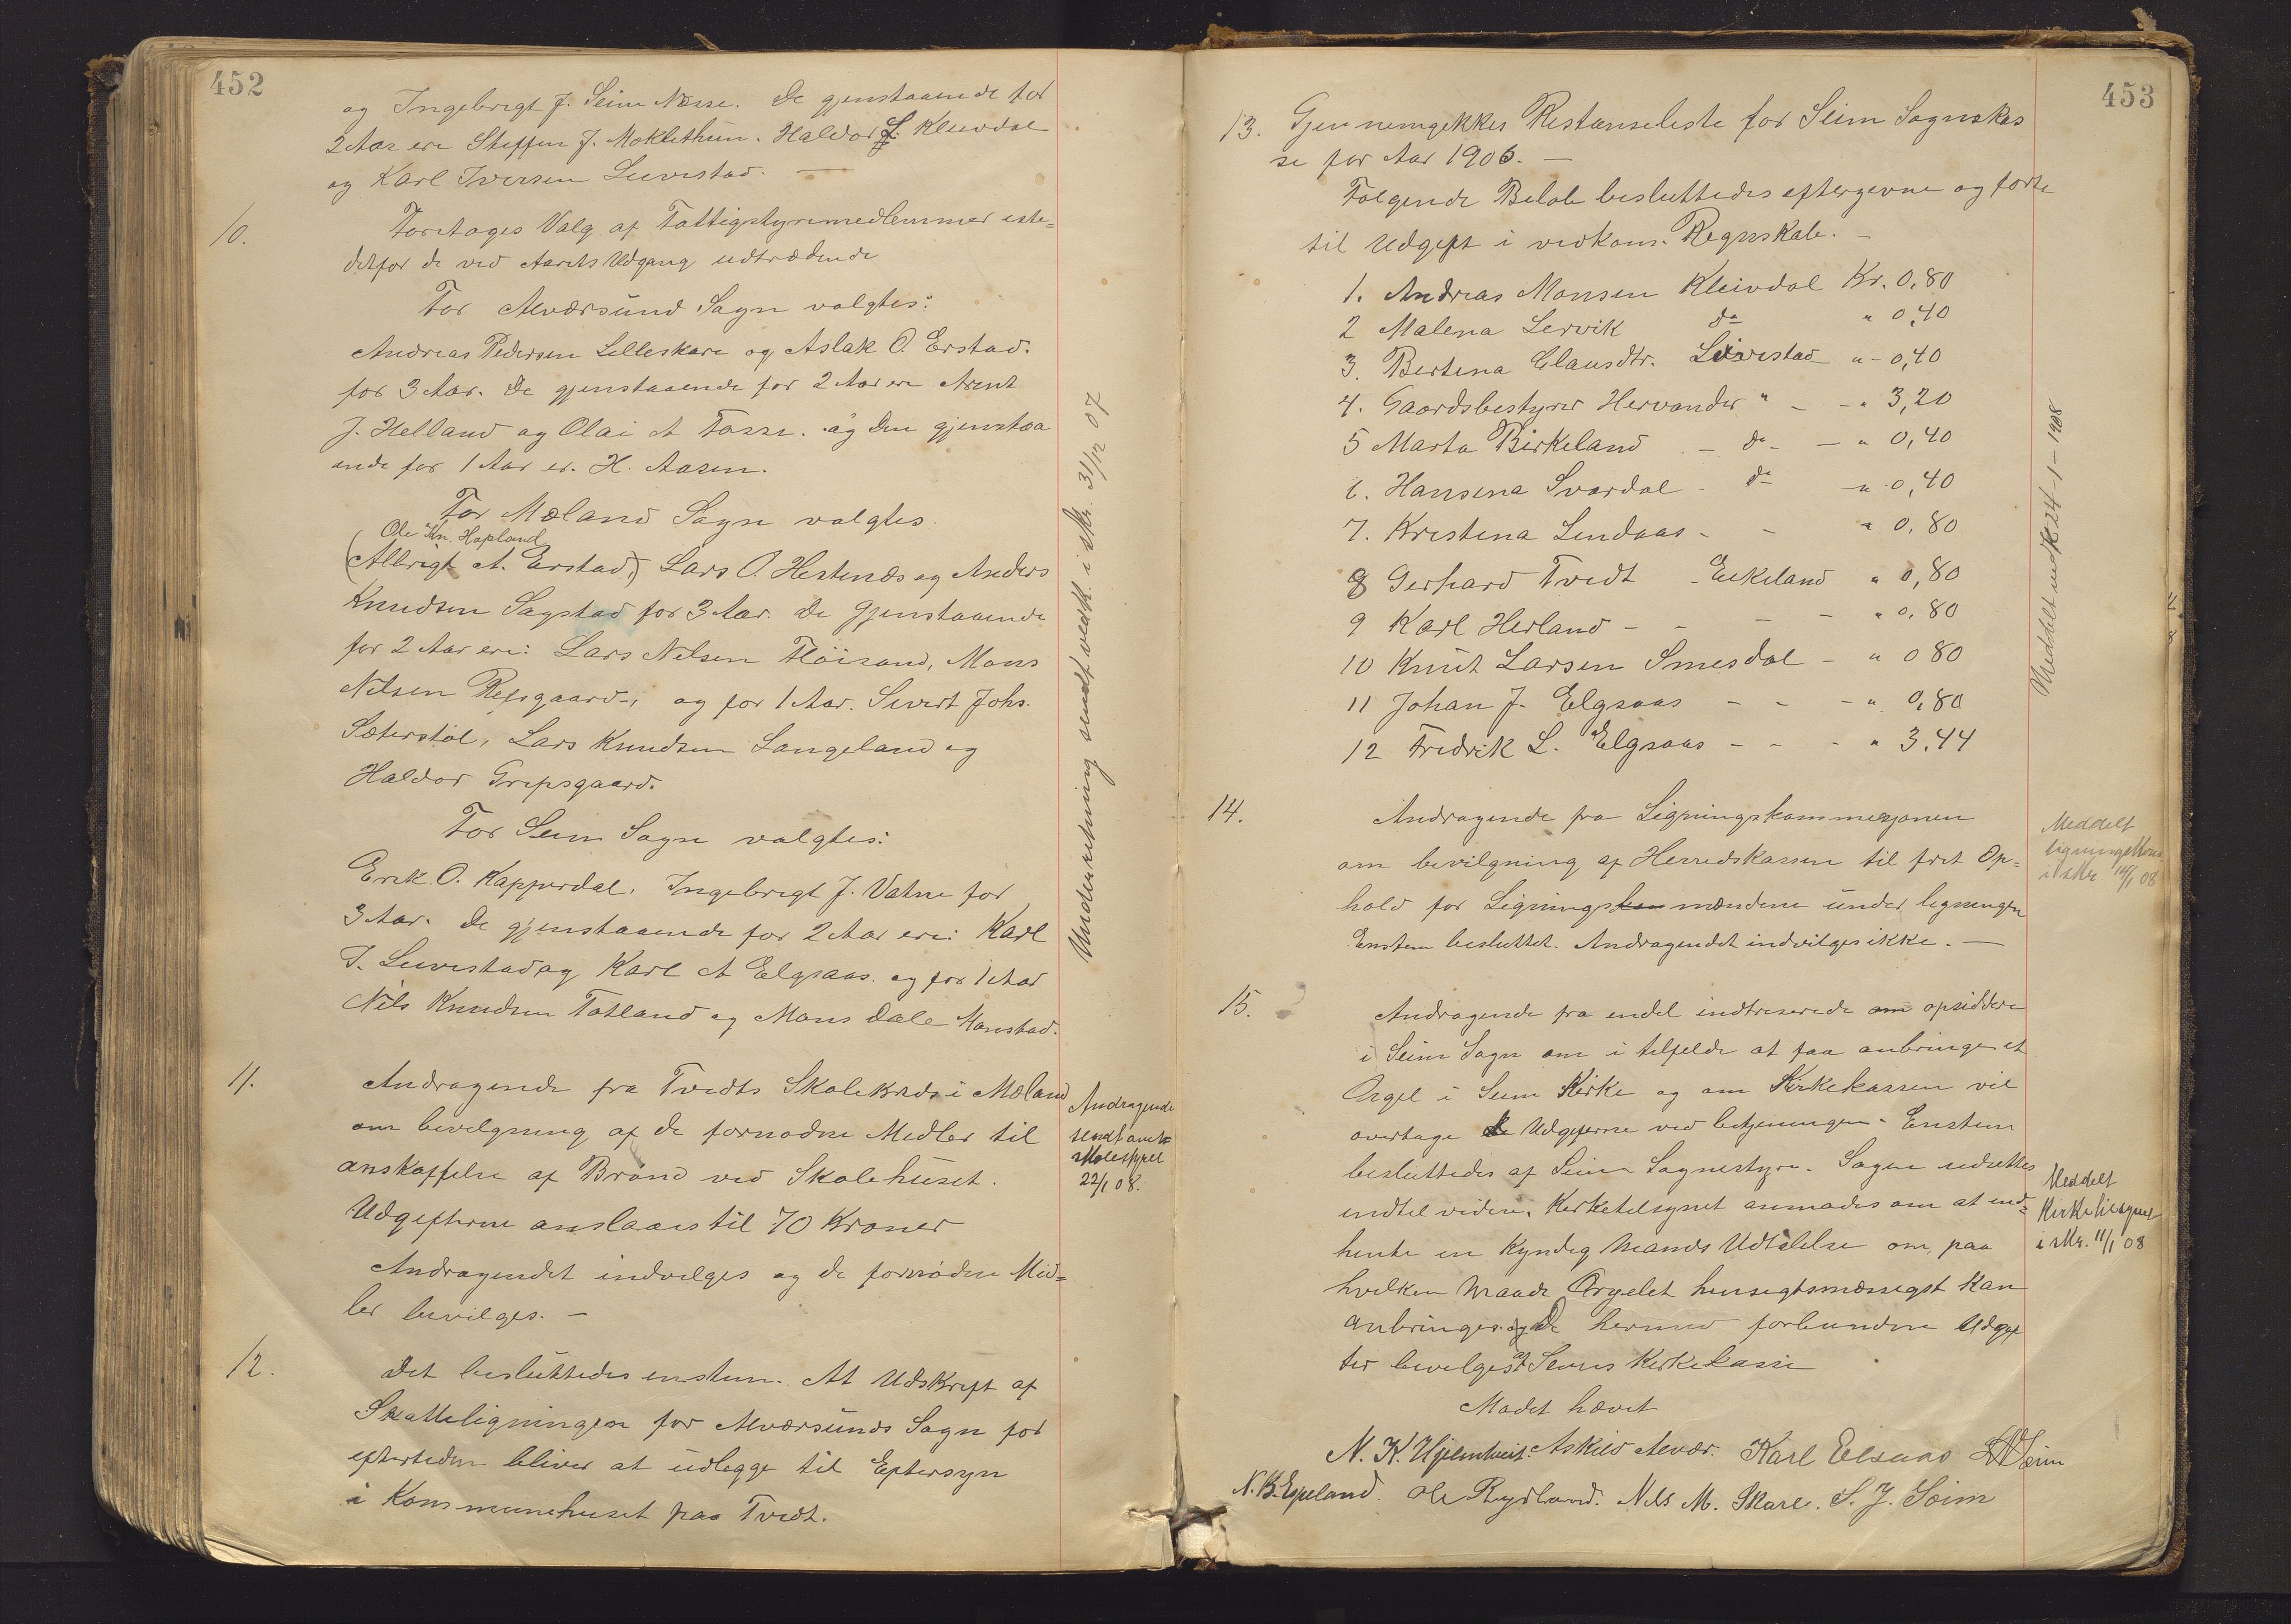 452
og Ingebrigt J. Seim Næsse. De gjenstaaende for
2 Aar ere Steffen J. Moklethun. Haldor J. Kleivdal
og Karl Iversen Leivestad. —
10.
Foretoges Valg af Fattigstyremedlemmer iste=
detfor de ved Aarets Udgang udtrædende
For Alværsund Sogn valgtes:
Andreas Pedersen Lilleskare og Aslak O. Erstad.
for 3 Aar. De gjenstaaende for 2 Aar ere Arent
J. Helland og Olai A Fosse. og den gjenstaa
ende for 1 Aar er. H. Aasen.
For Mæland Sogn valgtes.
Ole Kn. Hopland
(Albrigt A. Erstad,) Lars O. Hestenæs og Anders
Knudsen Sagstad for 3 Aar. De Gjenstaaende
for 2 Aar ere: Lars Nilsen Fløisand, Mons
Nilsen Refsgaard; og for 1 Aar. Sivert Johs.
Sæterstøl, Lars Knudsen Langeland og
Haldor Gripsgaard.
For Seim Sogn valgtes:
Erik O. Kopperdal. Ingebrigt J. Vatne for
3 Aar. De gjenstaaende for 2 Aar ere: Karl
I. Leivestad og Karl A Elgsaas. og for 1 Aar
Nils Knudsen Fotland og Mons Dale Monstad.
Underretning sendt vedk. i skr. 31/12 07
11.
Andragende fra Tvedts Skolekreds i Mæland
om bevilgning af de fornødne Midler til
anskaffelse af Brønd ved Skolehuset.
Udgifterne anslaaes til 70 Kroner
Andragendet indvilges og de fornødne Mid=
ler bevilges. —
Andragende
sendt
skolestyret
22/1 08.
12.
Det besluttedes enstem. At Udskrift af
Skatteligningen for Alværsunds Sogn for
eftertiden bliver at udlegge til Eftersyn
i Kommunehuset paa Tvedt.
453
13. Gjennemgikkes Restanseliste for Seim Sognekas
se for Aar 1906. —
Følgende Beløb besluttedes eftergivne og førte
til Udgift i vedkom. Regnskab. —
1. Andreas Monsen Kleivdal Kr. 0,80
2 Malena Lervik do " 0,40
3. Bertina Clausdtr. Leivestad " - 0,40
4. Gaardsbestyrer Hervander " - - " 3,20
5 Marta Birkeland - do - — " 0,40
6. Hansina Svardal - do - " 0,40
7. Kristina Lindaas - - " 0,80
8 Gerhard Tvedt - Eikeland " 0,80
9 Karl Herland - - - - " 0,80
10 Knut Larsen Smesdal - " 0 80
11 Johan J. Elgsaas - - - " 0,80
12 Fredrik L. Elgsaas - - - " 3,44
Meddelt vedk 24-1-1908
14.
Andragende fra Ligningskommisjonen
om bevilgning af Herredskassen til frit Op=
hold for Ligningskom mændene under ligningen
Enstem besluttet. Andragendet indvilges ikke. —
Meddelt
ligningskom
i skr 14/1 08
15.
Andragende fra endel indtreserede om opsiddere
i Seim Sogn om i tilfelde at faa anbringe et
Orgel i Seim Kirke og om Kirkekassen vil
overtage de Udgifterne ved betjeningen. Enstem
besluttedes af Seim Sognestyre. Sagen udsettes
indtil videre. Kirketilsynet anmodes om at ind=
hente en Kyndig Mands Udtalelse om, paa
hvilken Maade Orgelet hensigtsmæssigst kan
anbringes. og De hermed forbundne Udgif
ter bevilges af Seims Kirkekasse
Meddelt
Kirketilsynet
i skr. 11/1 08
Mødet hævet
N. K. Hjelmtveit. Askild Alvær. Karl Elsaas Seim
N. B. Espeland. Ole Rydland. Nils M. Skare. S. J. Seim